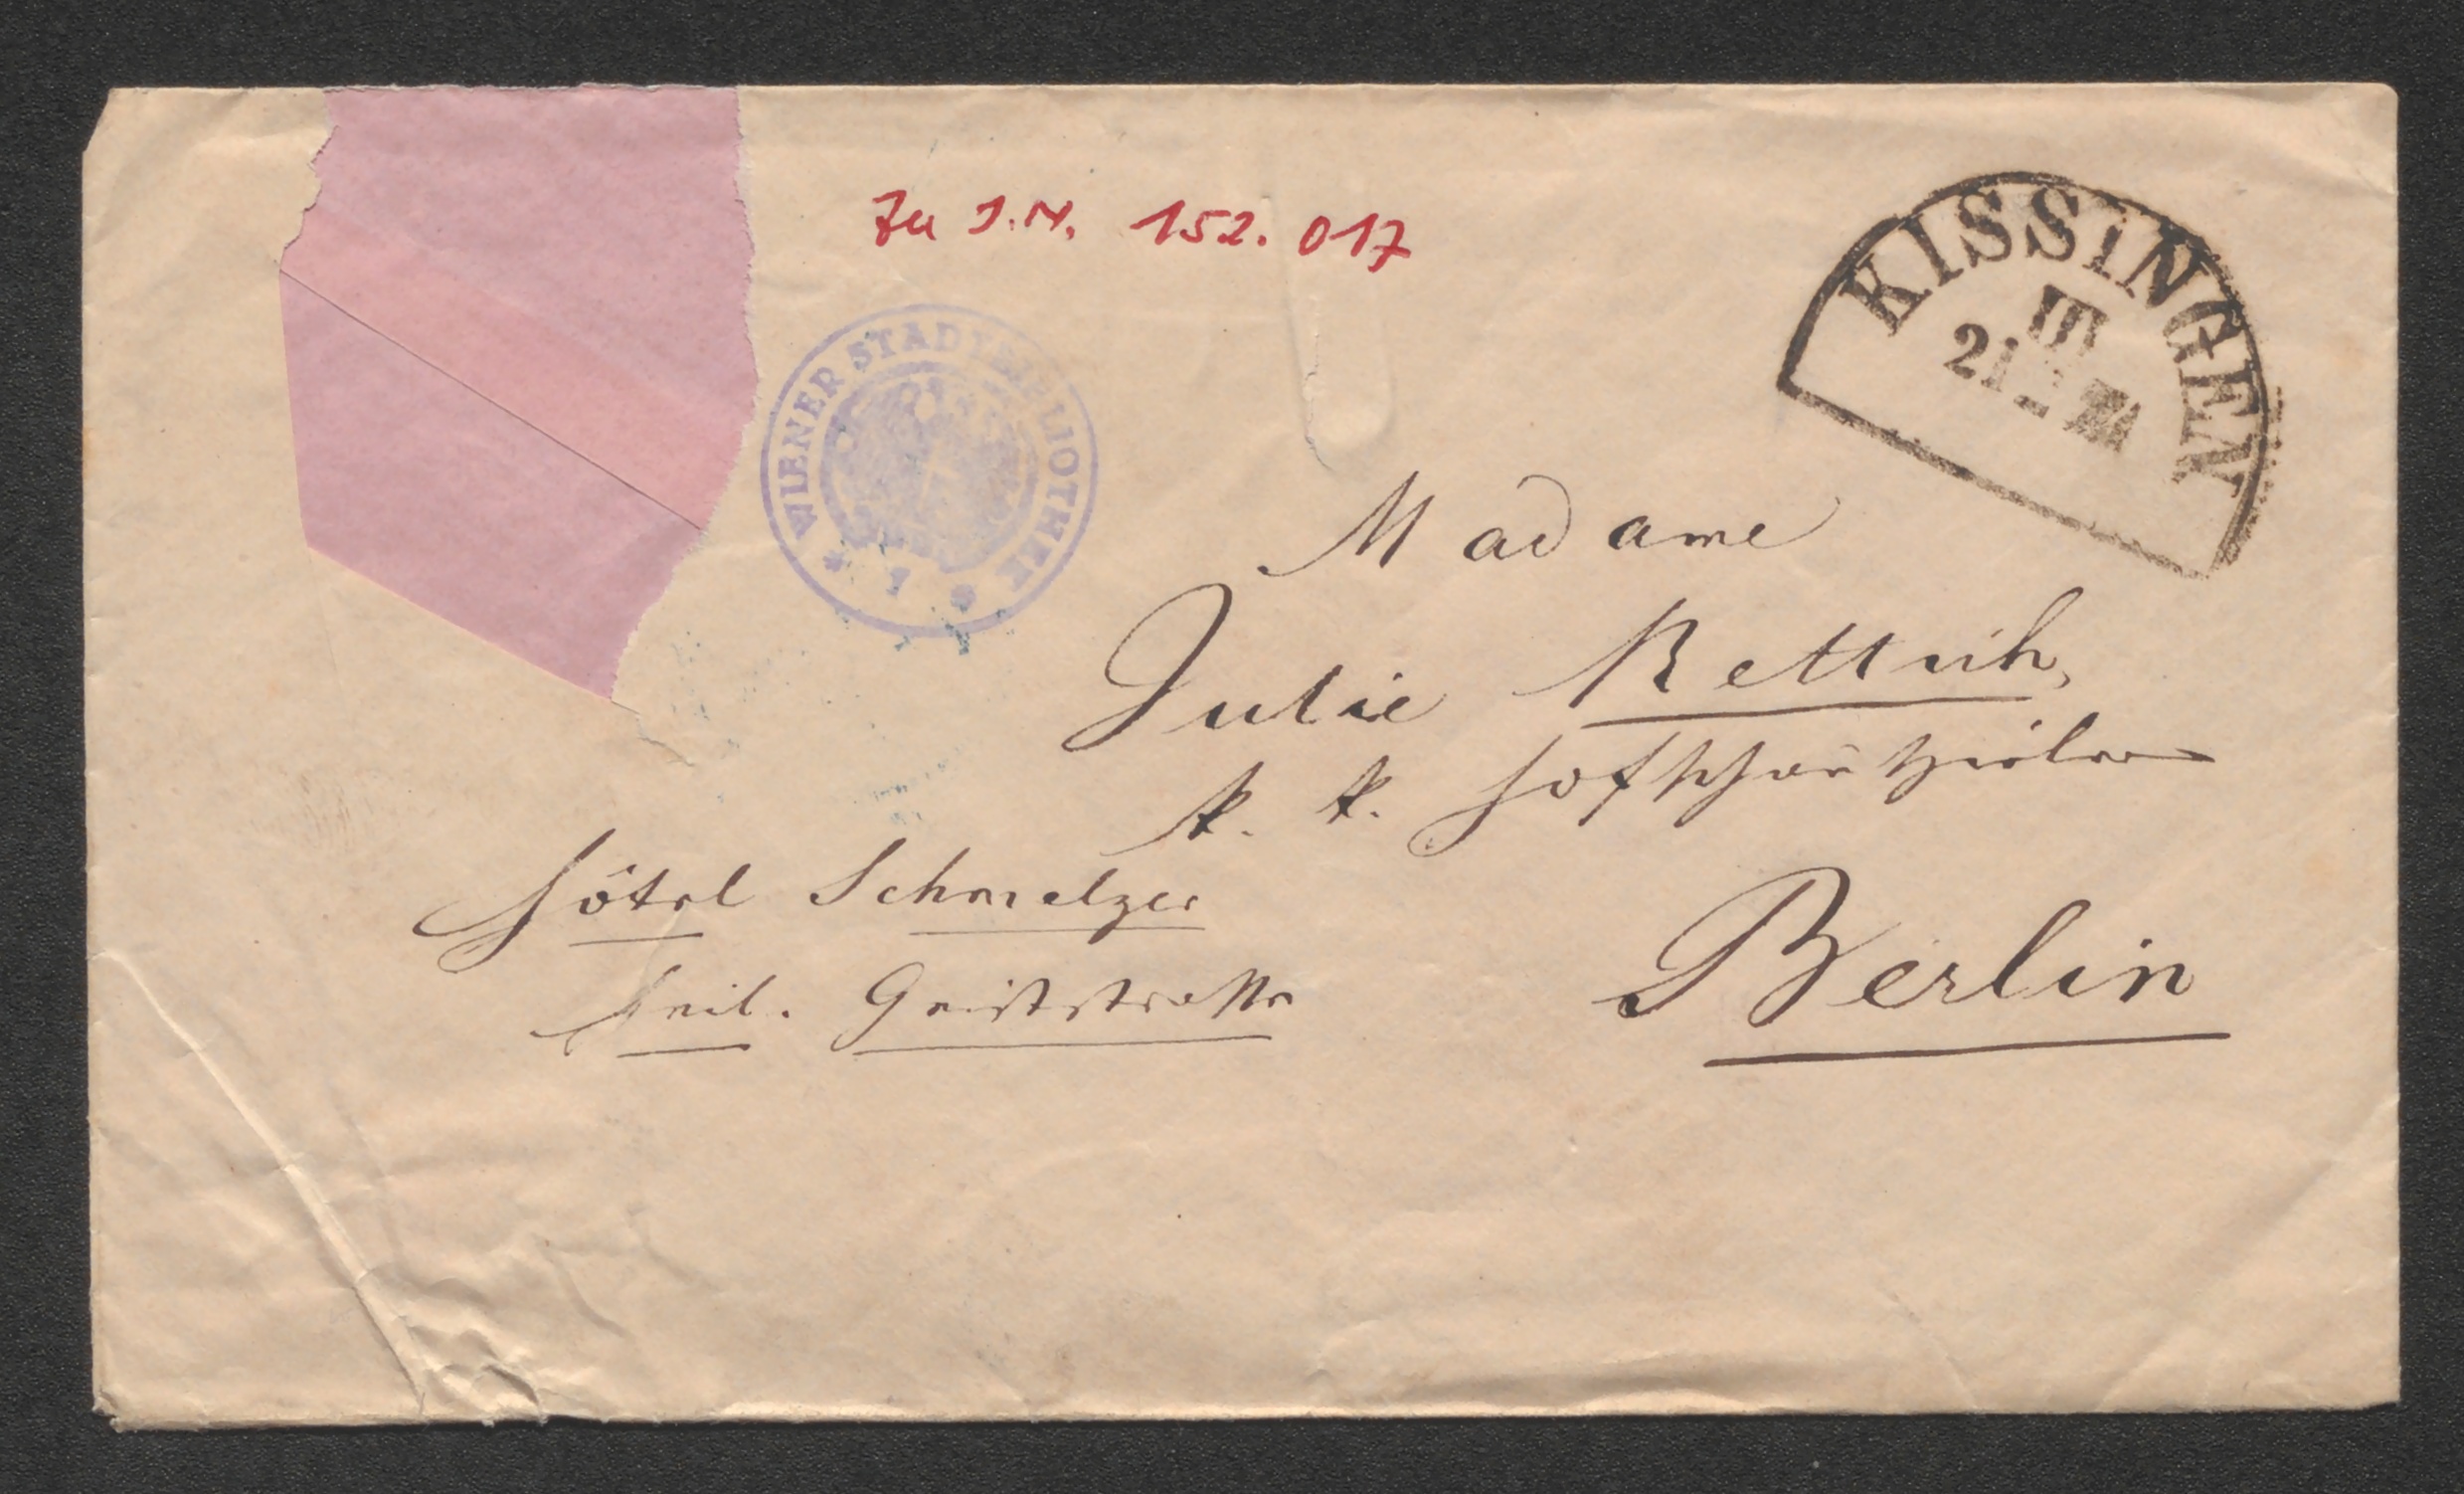 Zu I.N. 152.017
WIENER STADTBIBLIOTHEK
KISSINGEN
III
21
Madame
Julie Rettich,
k. k. Hofschauspielerin
Hôtel Schmelzer
Heil. Geiststraße
Berlin